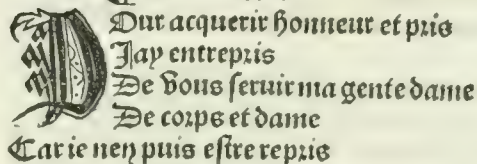 POur acquerir honneur et pris
Jay entrepris
De vous seruir ma gente dame
De corps et dame
Car ie nen puis estre repris